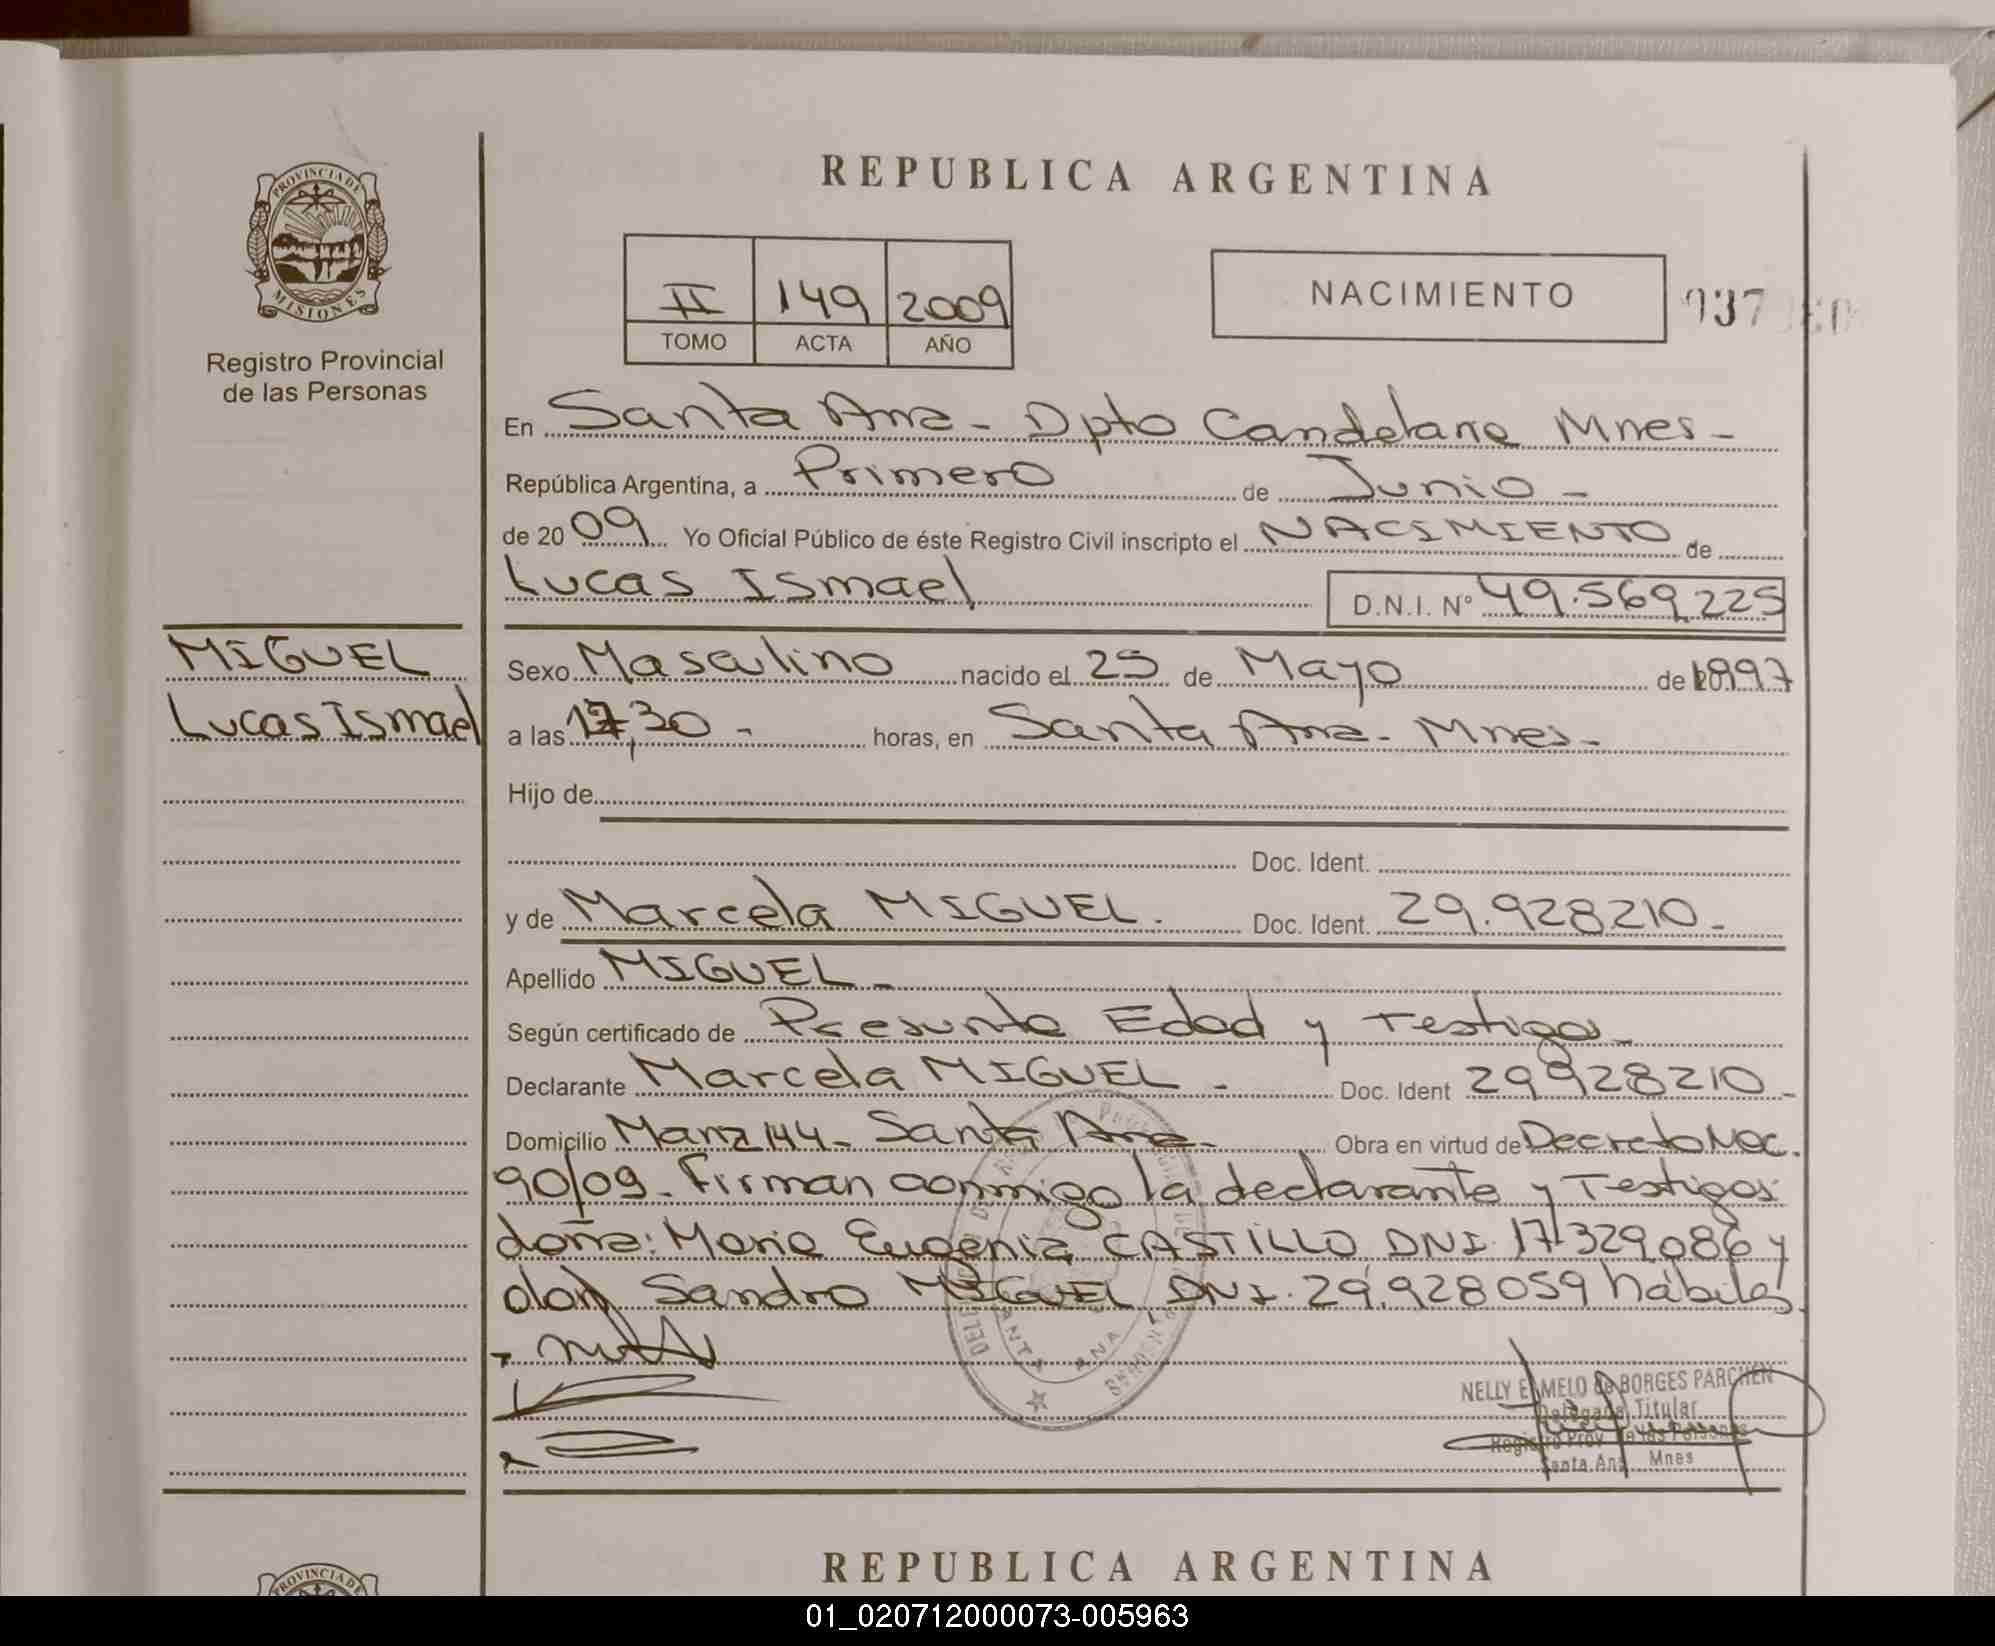 PROVINCIA DE
MISIONES
Registro Provincial
de las Personas
MIGUEL
Lucas Ismael
REPUBLICA ARGENTINA
II 149 2009
TOMO ACTA AÑO
NACIMIENTO
937
En Santa Ana - Dpto Candelaria Mnes -
República Argentina, a Primero de Junio -
de 2009 Yo Oficial Público de éste Registro Civil inscripto el NACIMIENTO de
Lucas Ismael D.N.I. Nº 49.569.225
Sexo Masculino nacido el 25 de Mayo de 1997
a las 30 - horas, en Santa Ana - Mnes -
Hijo de
Doc. Ident.
y de Marcela MIGUEL. Doc. Ident. 29.928210 -
Apellido MIGUEL -
Según certificado de Presunta Edad y Testigos -
Declarante Marcela MIGUEL - Doc. Ident 29928210 -
Domicilio Manz 144 - Santa Ana - Obra en virtud de Decreto Nac.
90/09 - Firman conmigo la declarante y Testigos
doña: Maria Eugenia CASTILLO DNI 17329086 y
don Sandro MIGUEL DNI. 29.928059 hábiles
NELLY E. MELO de BORGES PARCHEN
Delegada Titular
Registro Prov. de las Personas
Santa Ana Mnes
SANTA ANA
REPUBLICA ARGENTINA
PROVINCIA DE
01_020712000073-005963